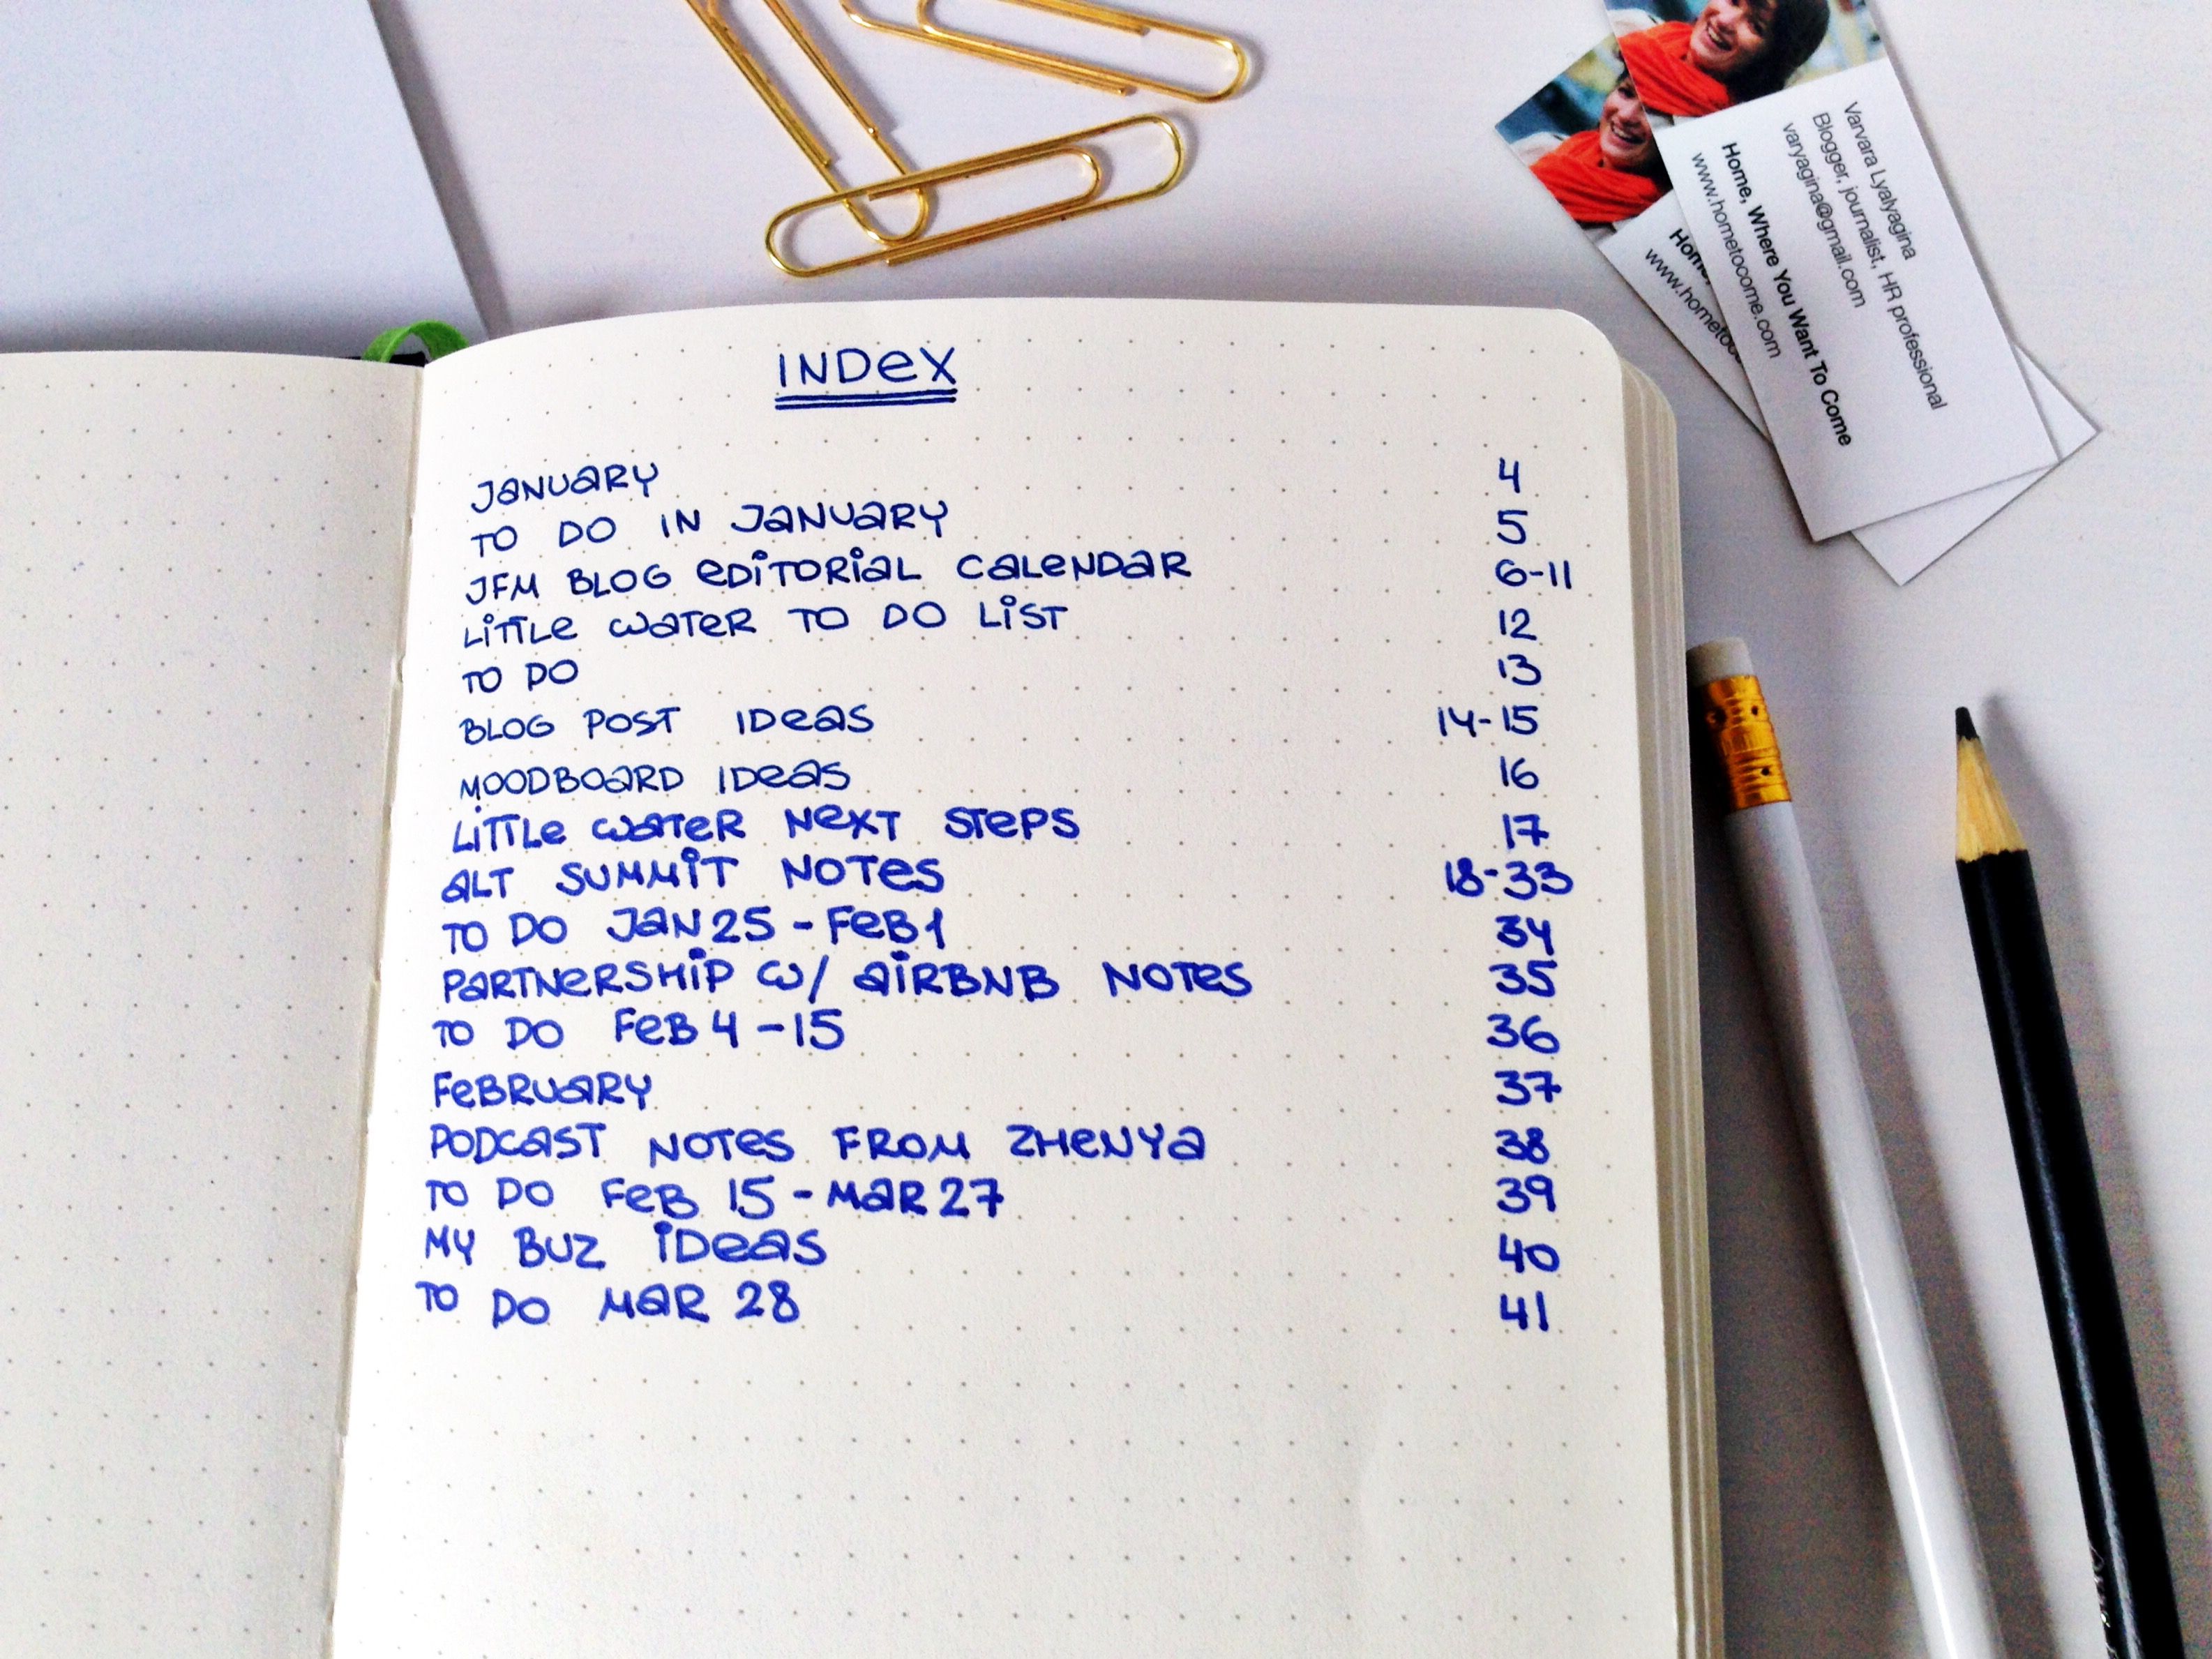 INDEX
JANUARY 4
TO DO IN JANUARY 5
JFM BLOG EDITORIAL CALENDAR 6-11
LITTLE WATER TO DO LIST 12
TO DO 13
BLOG POST IDEAS 14-15
MOODBOARD IDEAS 16
LITTLE WATER NEXT STEPS 17
ALT SUMMIT NOTES 18-33
TO DO JAN 25 - FEB 1 34
PARTNERSHIP W/ AIRBNB NOTES 35
TO DO FEB 4 - 15 36
FEBRUARY 37
PODCAST NOTES FROM ZHENYA 38
TO DO FEB 15 - MAR 27 39
MY BUZ IDEAS 40
TO DO MAR 28 41
Varvara Lyalyagina
Blogger, journalist, HR professional
varyagina@gmail.com
Home, Where You Want To Come
www.hometocome.com
Home,
www.hometoc